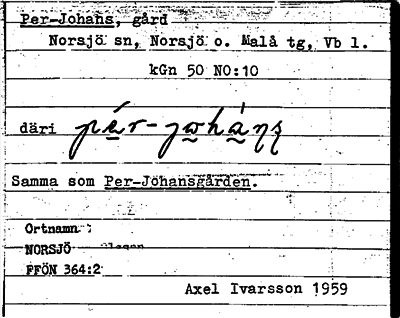 Per-Johans, gård
Norsjö sn, Norsjö o. Malå tg, Vb l.
kGn 50 NO:10
däri
Samma som Per-Johansgården.
Ortnamn
NORSJÖ
FFÖN 364:2
Axel Ivarsson 1959